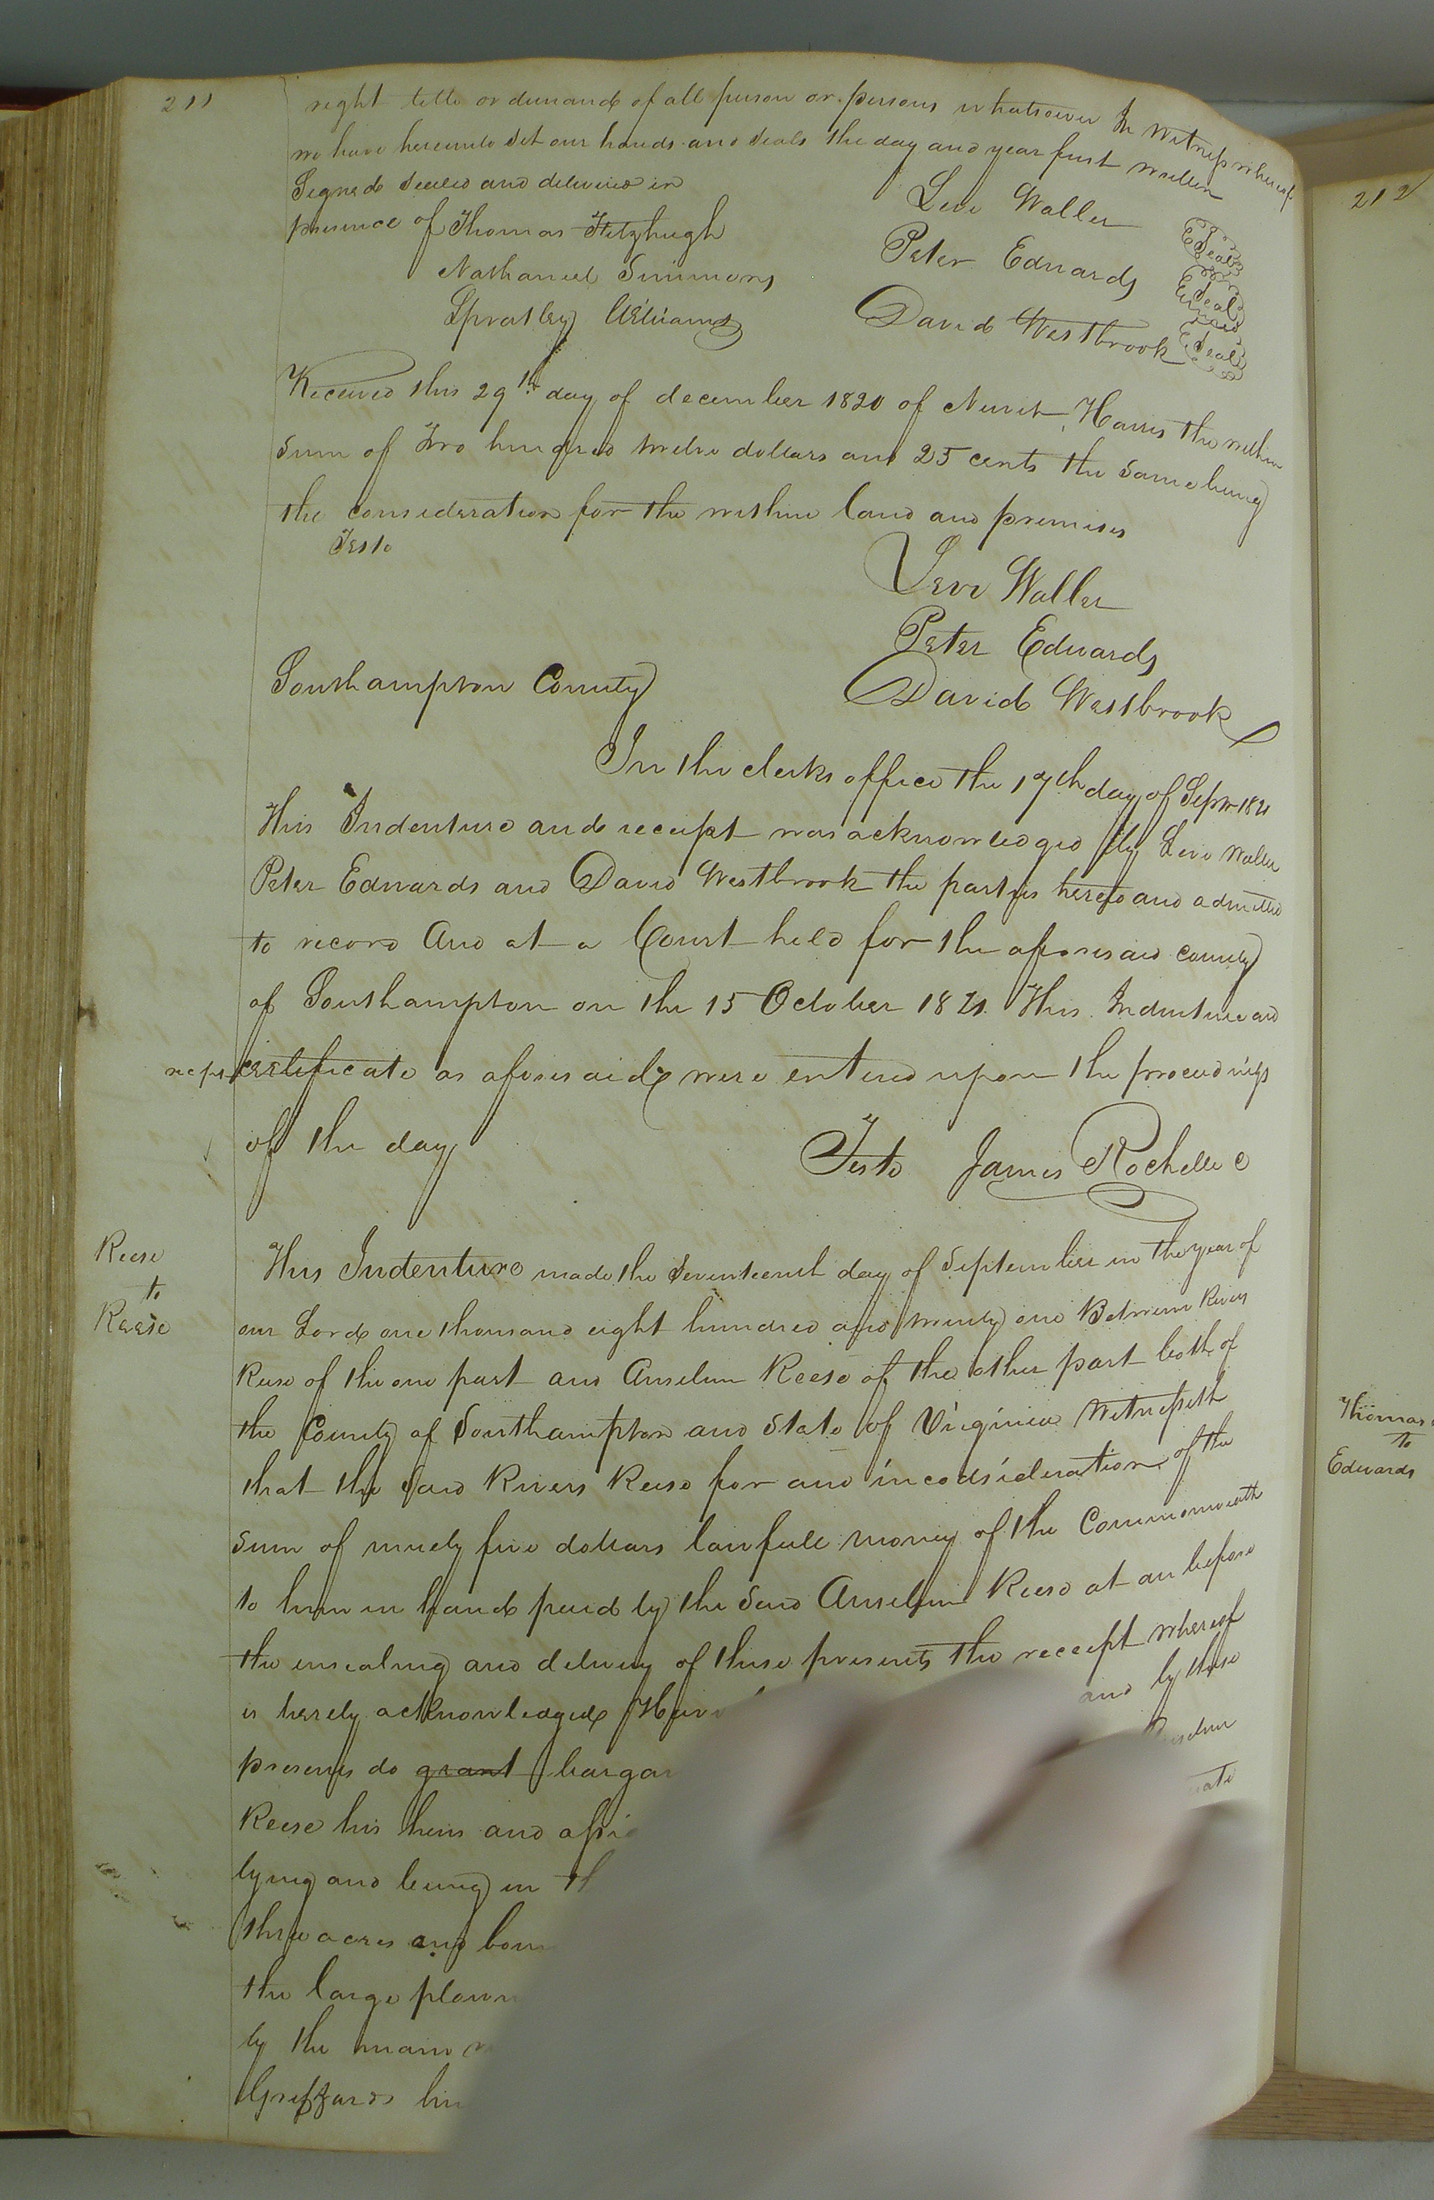 211
right title or demand of all person or persons whatsoever In Witness whereof
we have hereunto Set our hands and Seals the day and year first written
Signed Sealed and delivered in
presence of Thomas Fitzhugh
Nathaniel Simmons
Spratley Williams
Levi Waller Seal
Peter Edwards Seal
David Westbrook Seal
Received this 29th day of december 1820 of Newit Harris the within
Sum of Two hundred twelve dollars and 25 cents the Same being
the consideration for the within land and premises
Teste
Levi Waller
Peter Edwards
David Westbrook
Southampton County
In the clerks office the 17th day of Septr 1821
This Indenture and receipt was acknowledged by Levi Waller
Peter Edwards and David Westbrook the parties hereto and admitted
to record And at a Court held for the aforesaid county
of Southampton on the 15 October 1821. This Indenture and
recpt certificate as aforesaid were entered upon the proceedings
of the day
Teste James Rochelle C
Reese
to
Reese
This Indenture made the Seventeenth day of September in the year of
our Lord one thousand eight hundred and twenty one Between Rivers
Reese of the one part and Anselm Reese of the other part both of
the County of Southampton and State of Virginia Witnesseth
that the Said Rivers Reese for and in cosideration of the
Sum of ninety five dollars lawfull money of the Commonwealth
to him in hand paid by the Said Anselm Reese at an before
the ensealing and delivery of these presents the receept whereof
is hereby acknowledged and by these
presents do grant
Reese his heirs and
lying and being in
three acres and
the large
by the main
Grizzards
212
Thomas
to
Edwards